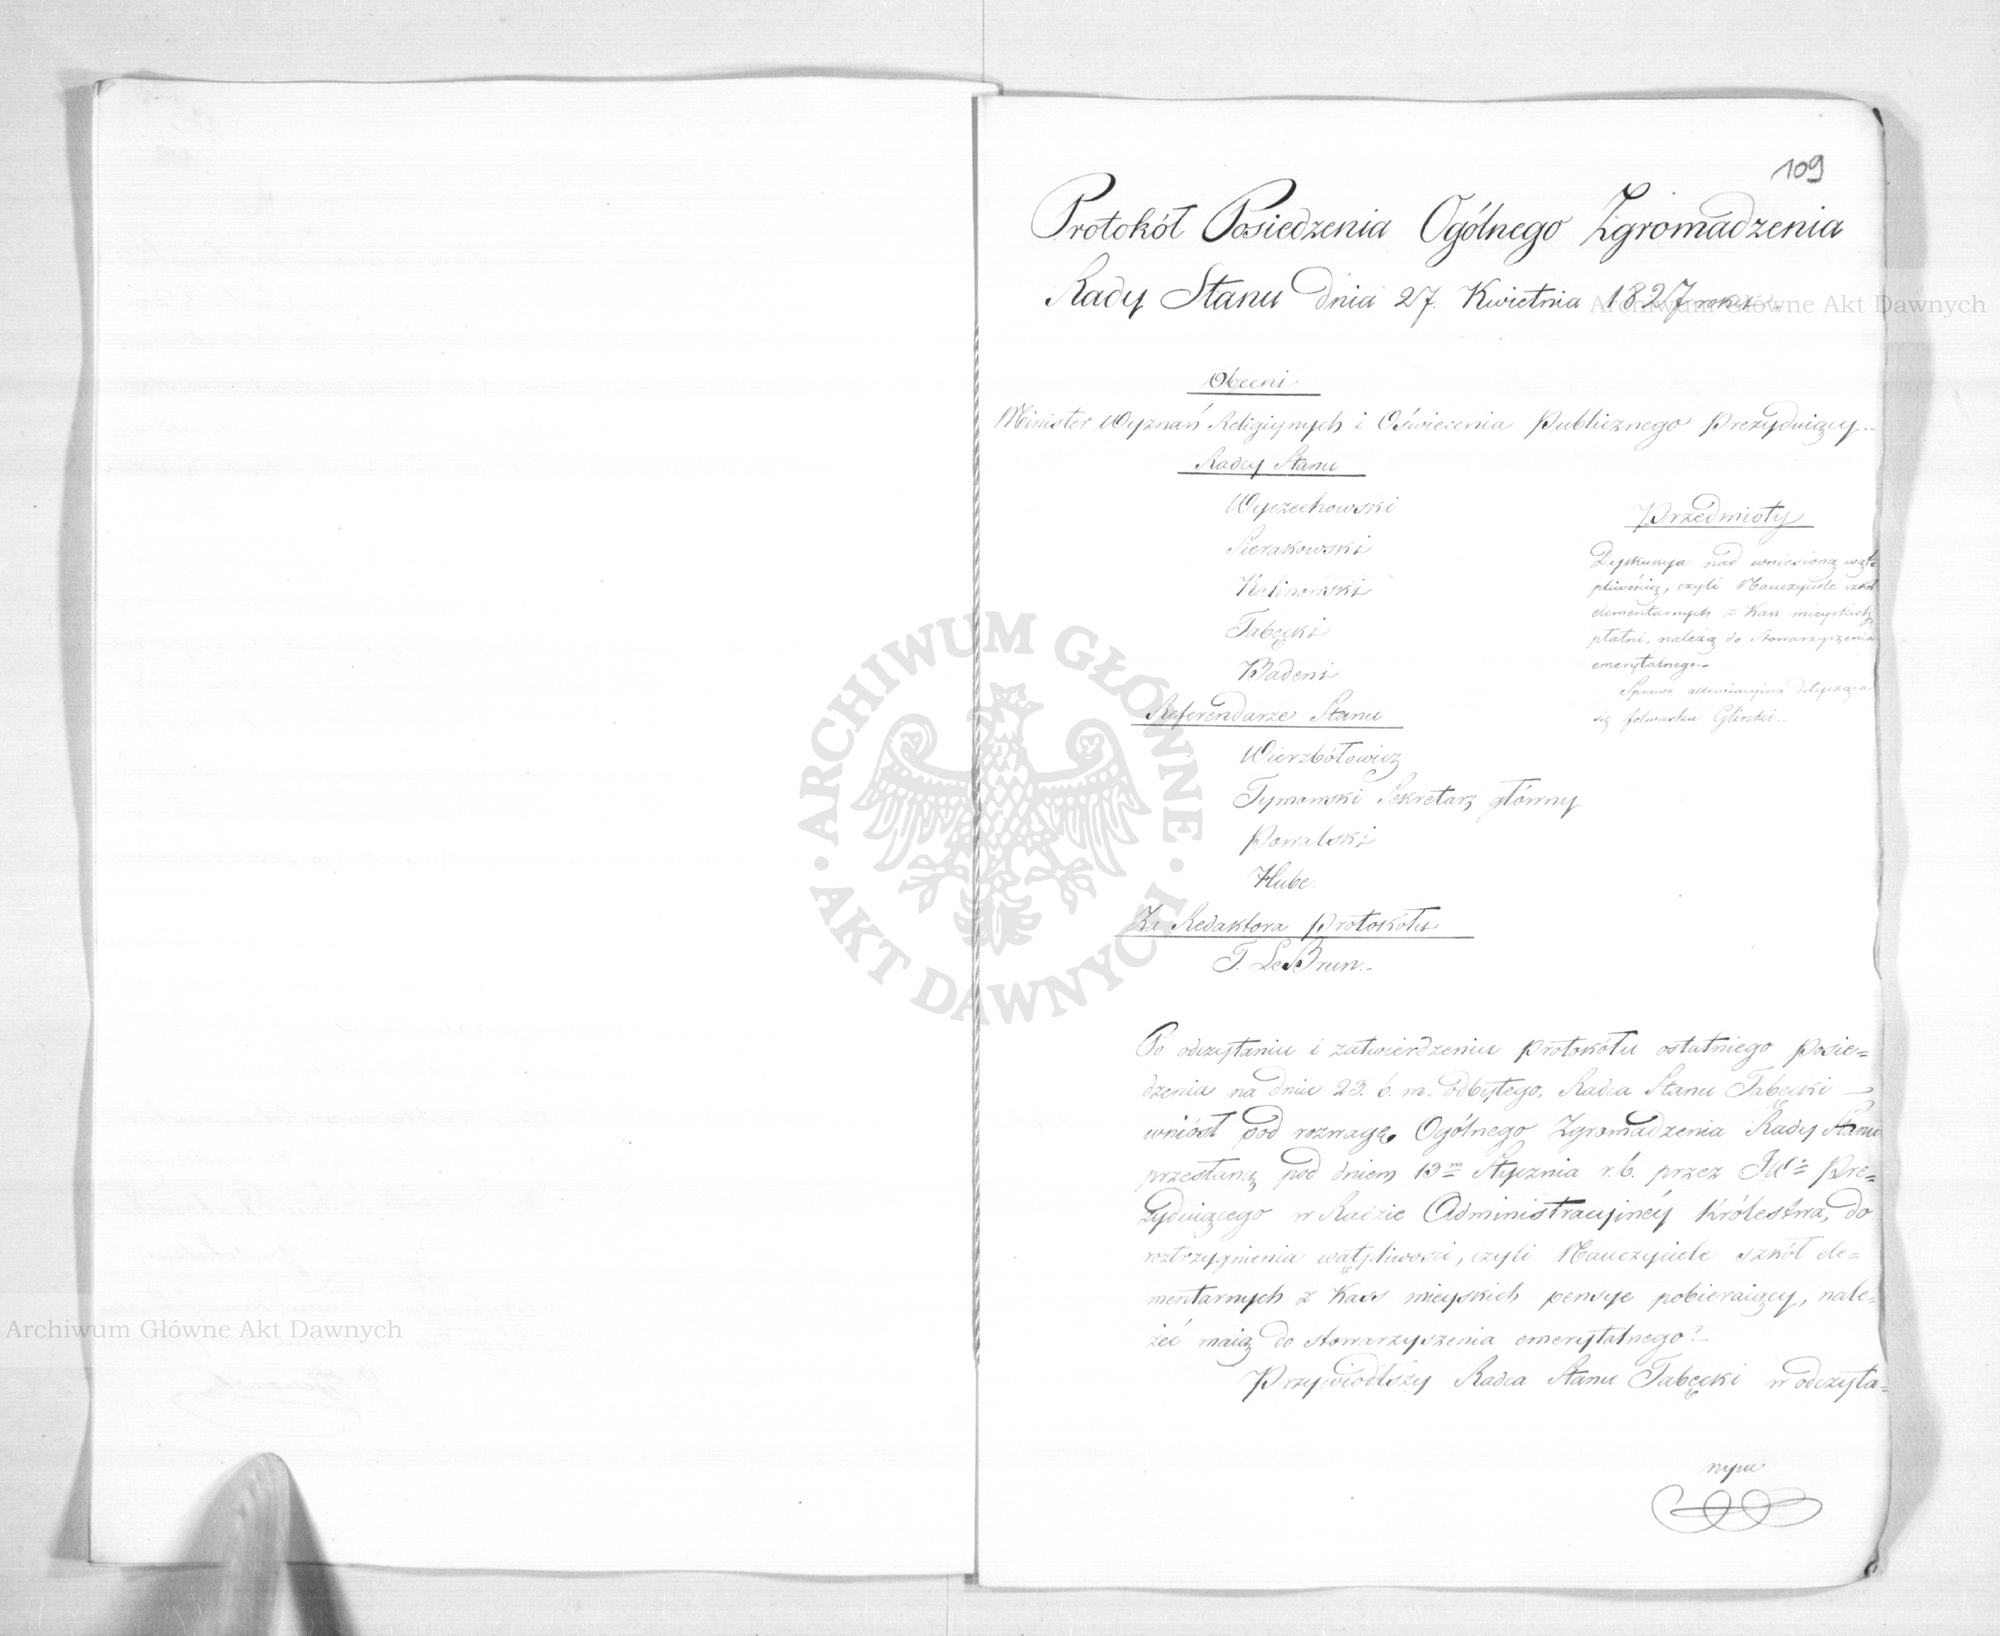 109
Protokół Posiedzenia Ogólnego Zgromadzenia
Rady Stanu dnia 27. Kwietnia 1827 roku.
Obecni
Minister Wyznań Religijnych i Oświecenia Publicznego Prezyduiący.
Radcy Stanu
Wyczechowski
Sierakowski
Kalinowski
Tabęcki
Badeni
Referendarze Stanu
Wierzbołowicz
Tymowski Sekretarz główny
Powalski
Hube
Za Redaktora Protokółu
T. Le Brun.
Przedmioty
Dyskussya nad wniesioną wąt=
pliwością, czyli Nauczyciele szkół
elementarnych z Kass mieyskich
płatni, należą do Stowarzyszenia
emerytalnego.
Sprawa dotycząca
się folwarku Glinki.
Po odczytaniu i zatwierdzeniu protokółu ostatniego posie=
dzenia na dniu 23. b. m. odbytego, Radca Stanu Tabęcki
wniósł pod rozwagę Ogólnego Zgromadzenia Rady Stanu
przesłaną pod dniem 13m Stycznia r. b. przez JW. Pre=
zyduiącego w Radzie Administracyjnéy Królestwa, do
roztrzygnienia wątpliwości, czyli Nauczyciele szkół ele=
mentarnych z Kass mieyskich pensye pobieraiący, nale=
żeć maią do stowarzyszenia emerytalnego?
Przywiodłszy Radca Stanu Tabęcki w odczyta=
nym
Archiwum Główne Akt Dawnych
ARCHIWUM GŁÓWNE · AKT DAWNYCH ·
Archiwum Główne Akt Dawnych